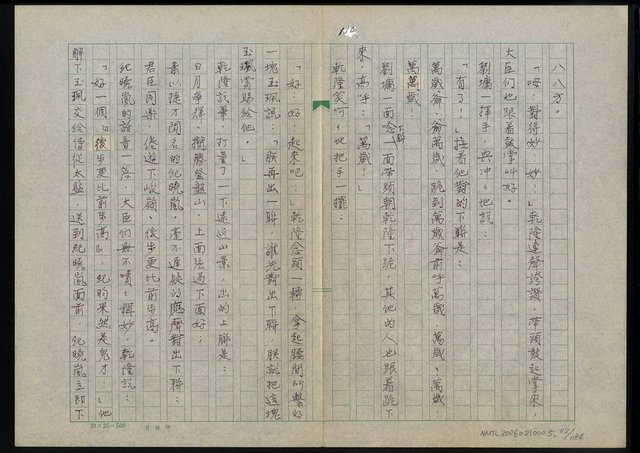 112
八八方。
「唔，對得妙！妙！」乾隆連聲誇讚，帶頭鼓起掌來，
大臣們也跟着鼓掌叫好。
劉墉一揮手，興沖沖地說：
「有了！」接着他對的下聯是：
萬歲爺，爺萬歲，跪到萬歲爺前呼萬歲，萬歲，萬歲
萬萬歲。
劉墉一面唸下聯一面帶頭朝乾隆下跪，其他的人也跟着跪下
來，高呼：「萬歲！」
乾隆笑呵呵地把手一擺：
「好！好！起來吧！」乾隆念頭一轉，拿起腰間所繫的
一塊玉珮說：「朕再出一聯，誰先對出下聯，朕就把這塊
玉珮賞賜給他。」
乾隆說畢，打量了一下遠近山景，出的上聯是：
日月爭輝，攬勝登盤山，上面強過下面好；
素以捷才聞名的紀曉嵐，毫不遲疑的應聲對出下聯：
君臣同樂，倦遊下峻嶺，後步更比前步高。
紀曉嵐的話音一落，大臣們無不嘖嘖稱妙，乾隆說：
「好一個『後步更比前步高』，紀昀果然是鬼才！」他
解下玉珮交給侍從太監，送到紀曉嵐面前，紀曉嵐立即下
20×25=500
NMTL20060210005, 02/186